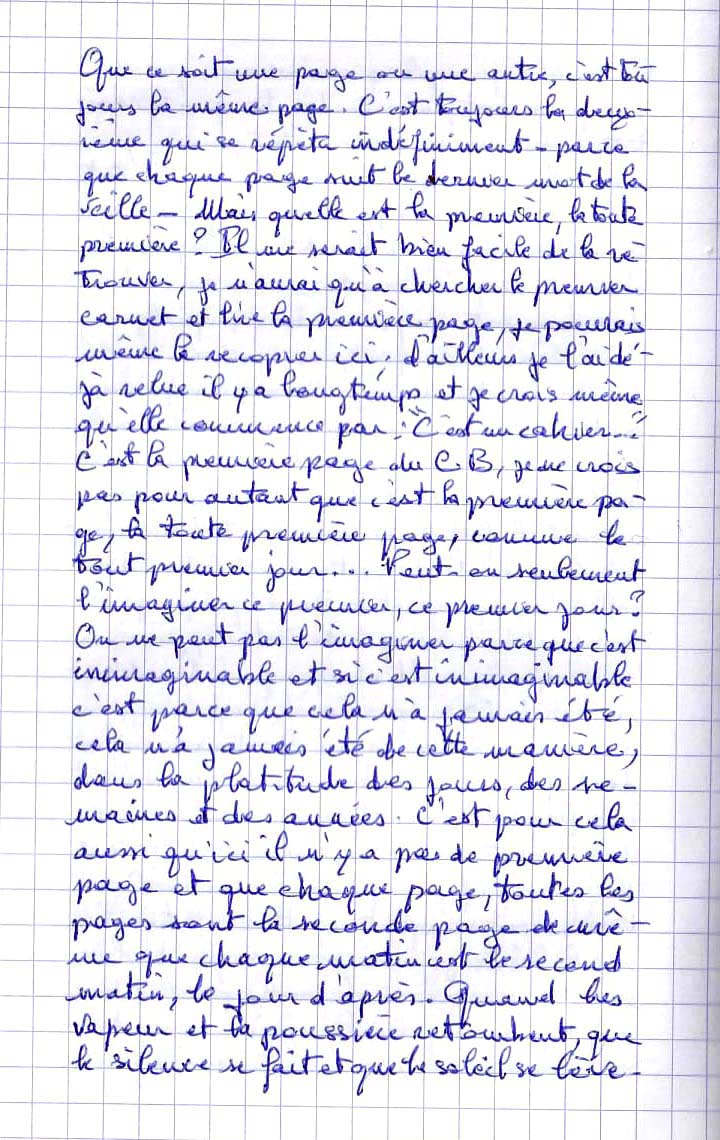 Que ce soit une page ou une autre, c'est tou
jours la même page. C'est toujours la deux-
ième qui se répèta indéfiniment - parce
que chaque page suit le dernier mot de la
veille - Mais quelle est la première, la toute
première ? Il me serait bien facile de la re
trouver, je n'aurai qu'à chercher le premier
carnet et lire la première page, je pourrais
même la recopier ici, d'ailleurs je l'ai dé-
jà relue il y a longtemps et je crois même
qu'elle commence par : "C'est un cahier..."
C'est la première page du C B, je ne crois
pas pour autant que c'est la première pa-
ge, la toute première page, comme le
tout premier jour... Peut-on seulement
l'imaginer ce premier, ce premier jour ?
On ne peut pas l'imaginer parce que c'est
inimaginable et si c'est inimaginable
c'est parce que cela n'a jamais été,
cela n'a jamais été de cette manière,
dans la platitude des jours, des se-
maines et des années. C'est pour cela
aussi qu'ici il n'y a pas de première
page et que chaque page, toutes les
pages sont la seconde page de mê-
me que chaque matin est le second
matin, le jour d'après. Quand les
vapeur et la poussière retombent, que
le silence se fait et que le soleil se lève -